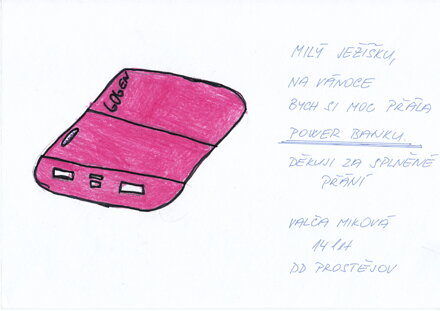 GOGEN
MILÝ JEŽÍŠKU,
NA VÁNOCE
BYCH SI MOC PŘÁLA
POWER BANKU
DĚKUJI ZA SPLNĚNÉ
PŘÁNÍ
VALČA MIKOVÁ
14 let
DD PROSTĚJOV